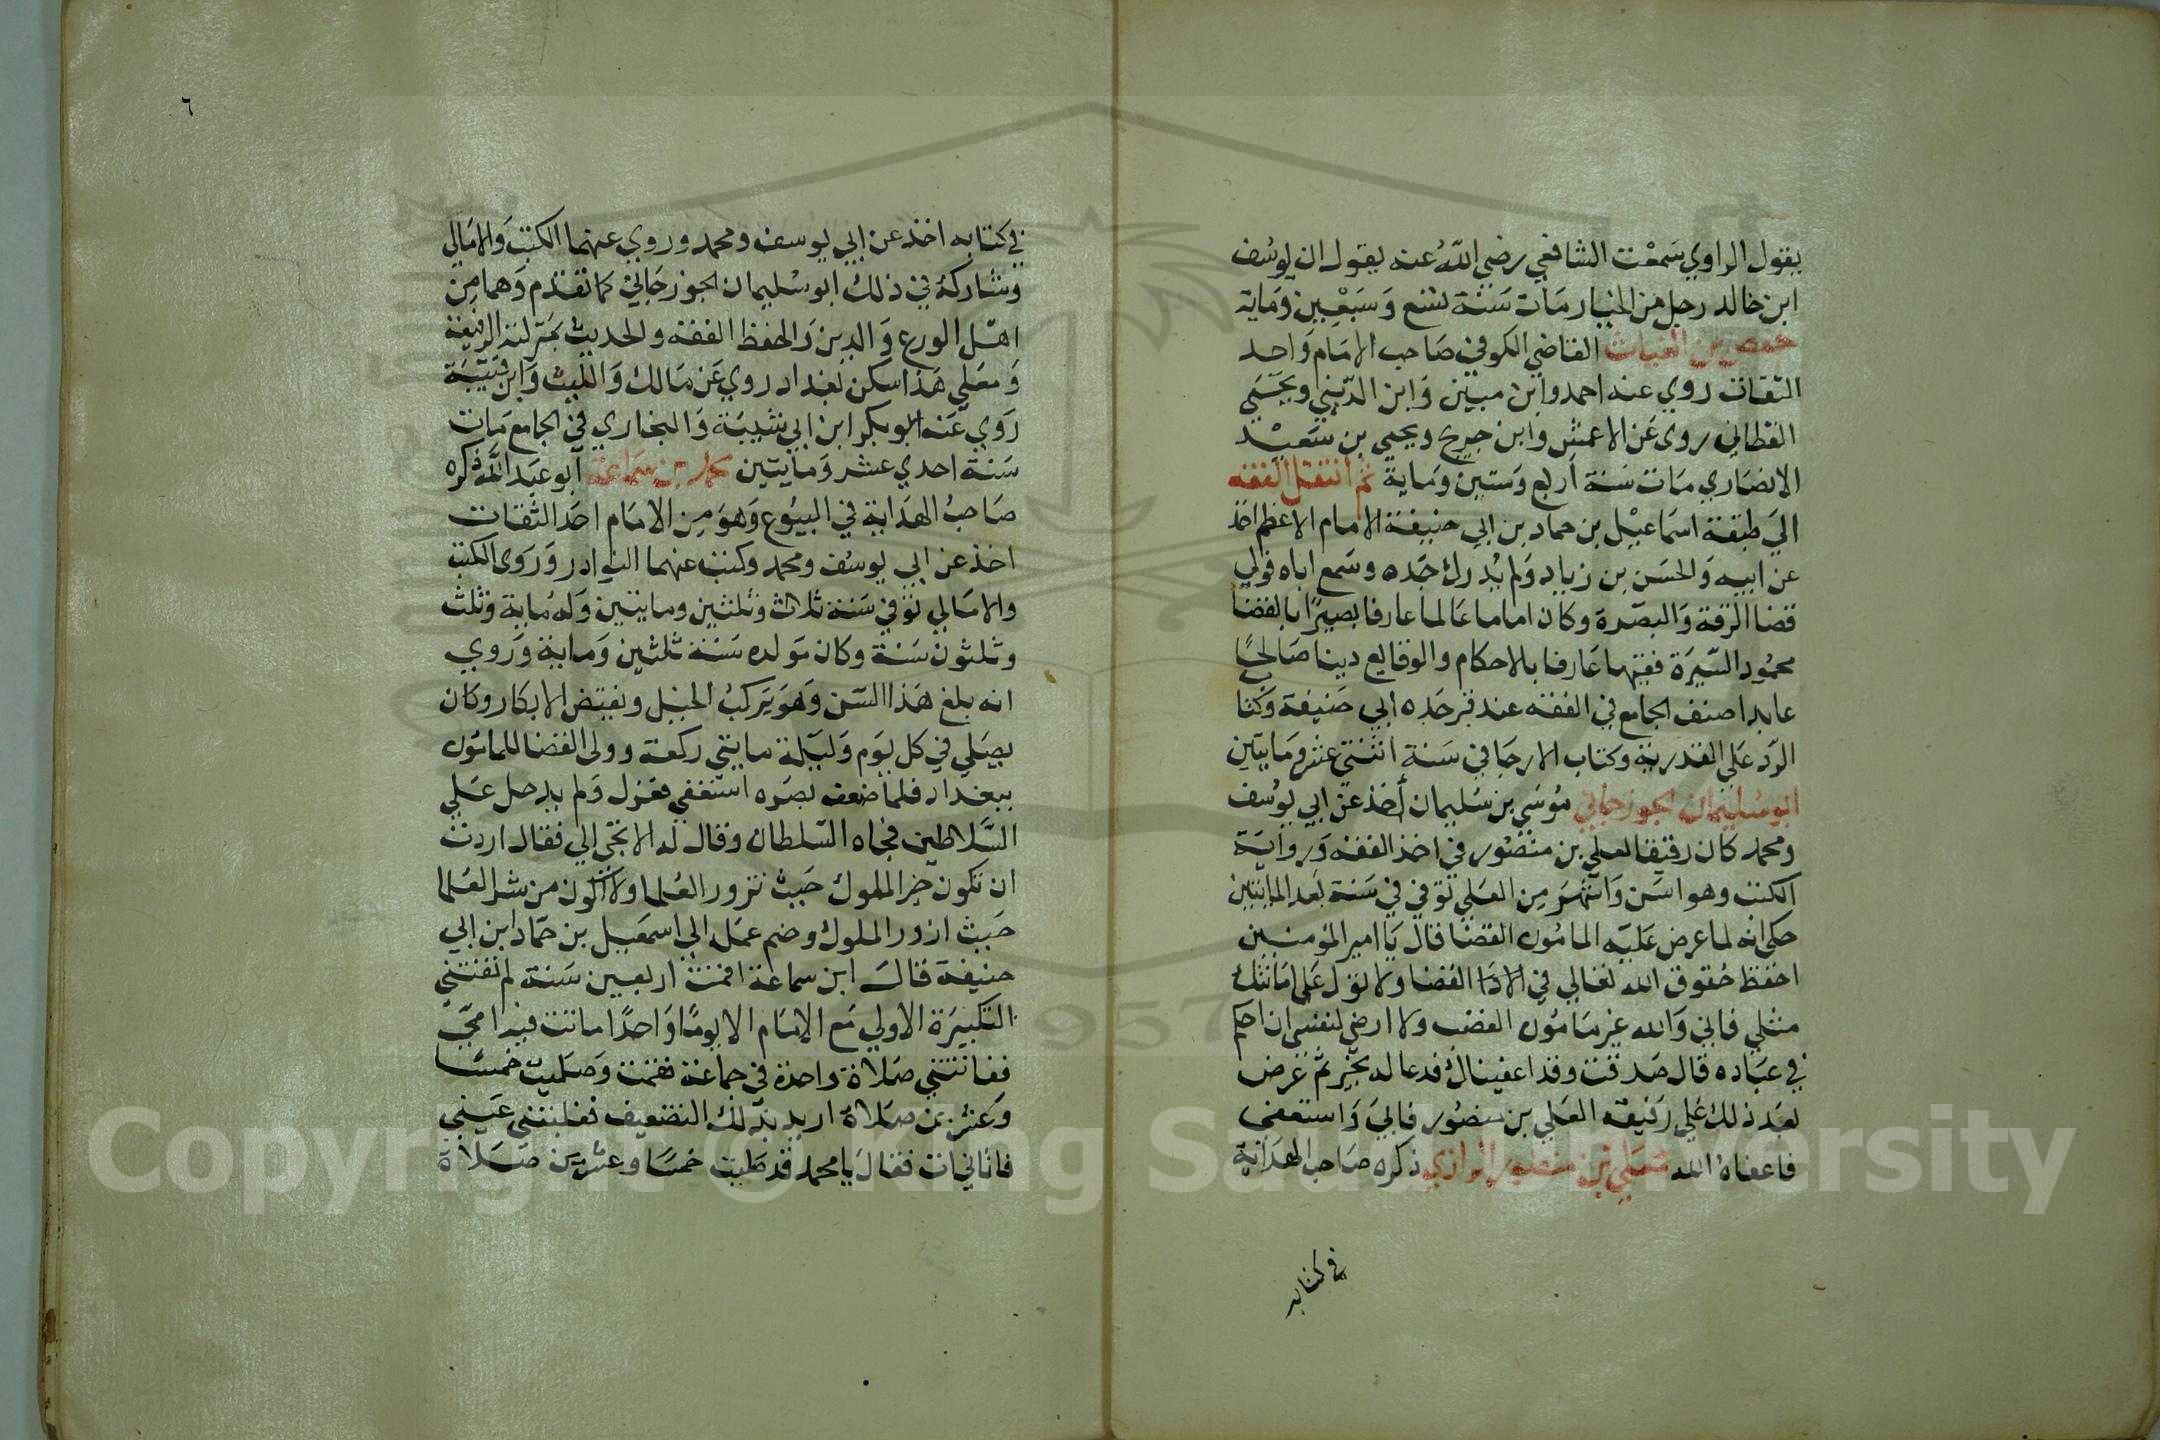 يقول الراوي سَمعْت الشافعي رضي اللهُ عنه يقول ان يوسُف
ابن خالد رجل من الخيار مات سَنَة تسْع وَسَبْعِين وَماية
حفص بن الغياث القاضي الكوفي صَاحب الامَام وَاحد
الثقات روي عنه احمد وابن مبين وَابن المديني ويحيَي
القطاني روي عَن الاعمش وابن جريج ويحيي بن سَعيْد
الانصَاري مات سَنة أربع وَستين ومَاية ثم انتقل الفقه
الي طبقة اسماعيْل بن حماد بن ابي حنيفة الامام الاعظم اخذ
عن ابيه وَالحسَن بن زياد وَلم يُدرك جَده وسَمع اباه فولي
قضا الرقة وَالبصّرة وكان اماما عَالما عارفا بصيرًا بالقضا
محمُود السّيرَة فقيها عَارفا بالاحكام والوقايع دينا صَالحًا
عابدا صنف الجامع في الفقه عند قبر جَده أبي حَنيفة وَكتا
الرّد عَلي القدرية وكتاب الارجا في سَنة اثنتي عشر ومَايتين
ابو سُليمان الجوزجاني موُسَي بن سُليمان أخذ عن ابي يوسُف
ومحمد كان رفيقا لعلي بن منصُور في اخذ الفقه وَروايَة
الكتب وهو اسَن وَاشهَر مِن العَلي توفي في سَنة بَعد المايتين
حكي انه لما عرض عَليه المامُون القضَا قال يَا امير المؤمنين
احفظ حُقوق الله تعَالي في الادَا القضا ولا تول عَلي امَانتك
مثلي فاني وَالله غير مَامُون الغضب ولا ارضي لنفسي ان احكم
في عبَاده قال صَدقت وقد اعفيناك فدعا له بخَير ثم عَرض
بعَد ذلك عَلي رَفيقه العَلي بن منصُور فابيَ وَاستعفى
فاعفاهُ الله معَلي بن منصور الرازي ذكره صَاحب الهدَاية
في كتابه
٦
في كتابه اخذ عن ابي يوسف ومحمد وروي عنهما الكتبَ وَالامَالي
وَشاركهُ في ذلك ابو سُليمان الجوزجَاني كما تقدّم وَهمامِن
اهْل الورع وَالدِين وَالحفظ الفقه والحديث بمنزلة الرفيعة
وَمعَلي هَذا سكن بغداد روي عَن مَالك وَالليث وَابن قتيبَة
رَوي عَنه ابو بكر ابن ابي شَيبَة وَالبخاري في الجامع مَات
سَنة احدي عشر وَمايتين محمد بن سماعة ابو عبَد الله ذكره
صَاحبُ الهدَاية في البيُوع وَهوَ مِن الامَام احَد الثقات
اخذ عن ابي يوسُف ومحمد وَكتبَ عنهما النوادر وَرَوى الكتب
والامَالي توفي سَنة ثلاث وثلثين ومايتين وَله مُاية وثلث
وَثلثون سَنة وكان مَولده سَنة ثلثين وَماية وَروي
انه بلغ هَذا السّن وَهوَ يَركبُ الخيل ويفتض الابكار وكان
يصَلي في كل يوم وَليلة مَايتي ركعة وولى القضا للمامون
ببغداد فلما ضعف بصَره استعفي فعَزل وَلم يدخل عَلي
السَّلاطين فجاه السّلطان وقال له الا تجي إلي فقال اردت
ان تكون خير الملوك حَيث تزور العُلما ولا اكون من شر العُلما
حَيث ازور الملوك وضم عمَله الي اسمَعيل بن حمّاد ابن ابي
حنيفة قال ابن سماعة اقمتُ اربعين سَنة لم تفتني
التكبيرَة الاولي مَع الامَام الا يومًا وَاحدًا ماتت فيه امّي
ففاتتني صَلاة وَاحدة في جماعة فقمت وَصَليت خمسًا
وَعشرين صَلاة اريد بذلك التضعيف فغلبتني عَيني
فاتاني ات فقال يا محمد قد صَليت خمسًا وعشرين صَلاة
Copyright © King Saud University
1957